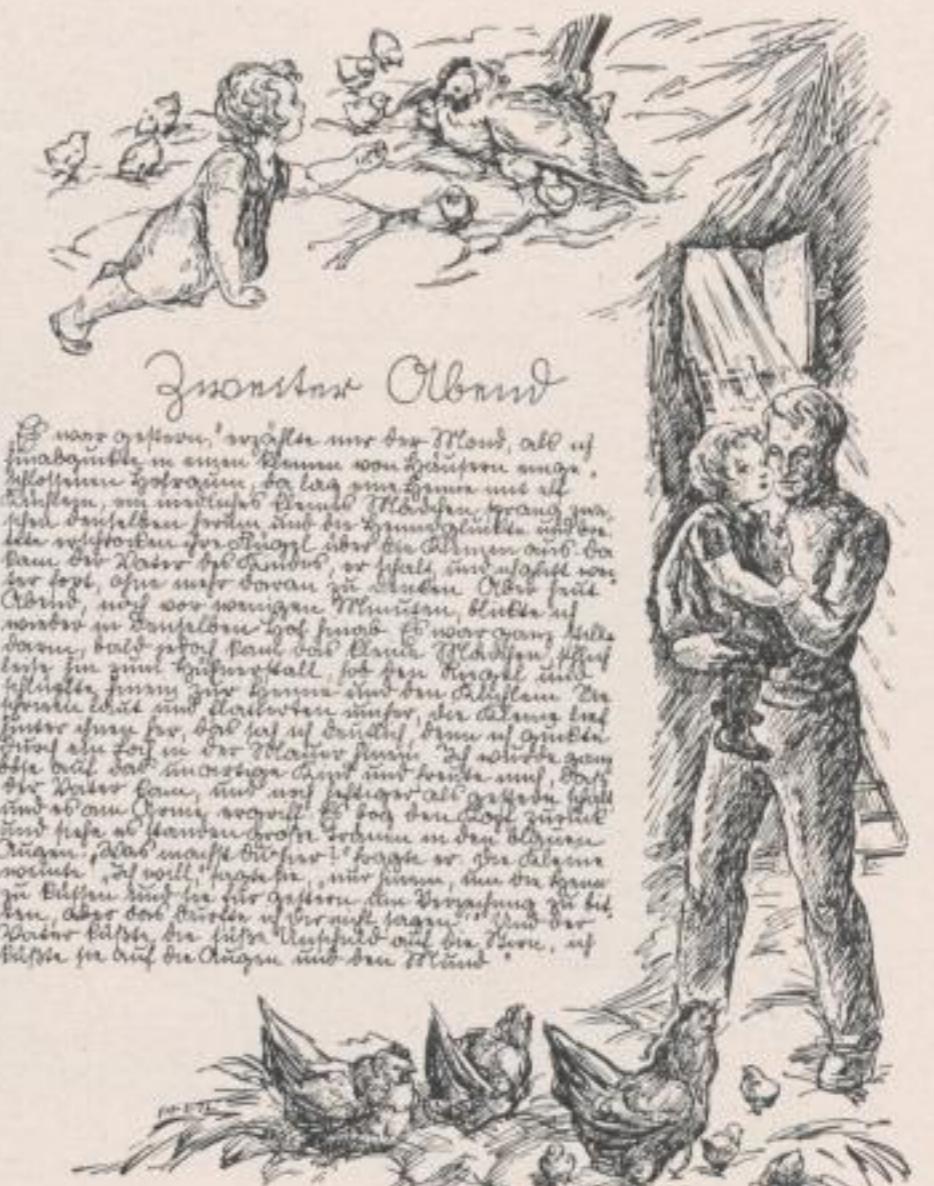 Zweiter Abend
„Es war gestern,“ erzählte mir der Mond, „als ich
hinabguckte in einen kleinen von Häusern einge-
schlossenen Hofraum, da lag eine Henne mit elf
Küchlein, ein niedliches kleines Mädchen sprang zwi-
schen denselben herum und die Henne gluckte und brei-
tete erschrocken ihre Flügel über die Kleinen aus. Da
kam der Vater des Kindes, er schalt, und ich glitt wei-
ter fort, ohne mehr daran zu denken. Aber heut'
Abend, noch vor wenigen Minuten, blickte ich
wieder in denselben Hof hinab. Es war ganz stille
darin, bald jedoch kam das kleine Mädchen, schlich
leise hin zum Hühnerstall, hob den Riegel und
schlüpfte hinein zur Henne und den Küchlein. Sie
schrieen laut und flatterten umher, die Kleine lief
hinter ihnen her, das sah ich deutlich, denn ich guckte
durch ein Loch in der Mauer hinein. Ich wurde ganz
böse auf das unartige Kind und freute mich, daß
der Vater kam, und noch heftiger als gestern schalt
und es am Arme ergriff. Es bog den Kopf zurück
und siehe es standen große Tränen in den blauen
Augen. „Was machst du hier?“ fragte er. Die Kleine
weinte „Ich will,“ sagte sie, „nur hinein, um die Henne
zu küssen und sie für gestern um Verzeihung zu bit-
ten, aber das durfte ich dir nicht sagen.“ Und der
Vater küßte die süße Unschuld auf die Stirn, ich
küßte sie auf die Augen und den Mund“